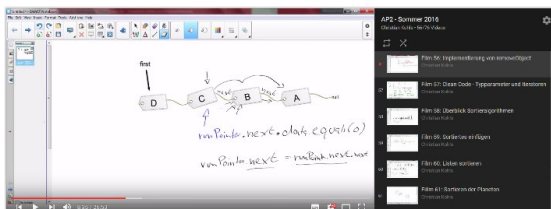 File Edit View Insert Format Tools Add-ons Help
first
D
C
B
A
.next.data.equals(o)
.next = .next.next
AP2 - Sommer 2016
Christian Kohls - 56/76 Videos
Film 56: Implementierung von removeObject
Christian Kohls
57
Film 57: Clean Code - Typparameter und Iteratoren
Christian Kohls
58
Film 58: Überblick Sortieralgorithmen
Christian Kohls
59
Film 59: Sortiertes einfügen
Christian Kohls
60
Film 60: Listen sortieren
Christian Kohls
61
Film 61: Sortieren der Planeten
Christian Kohls